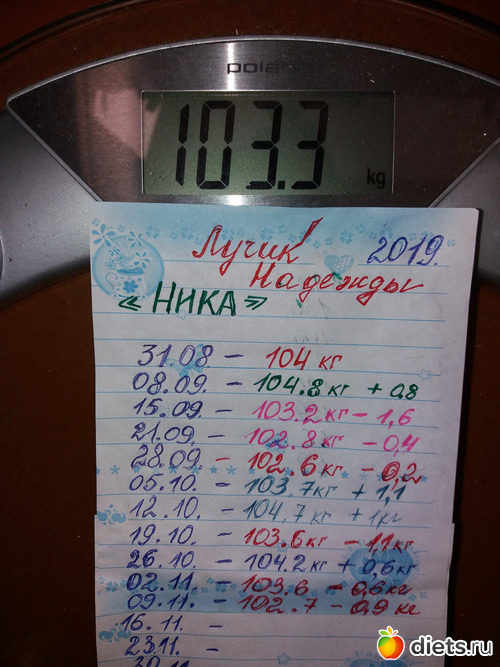 pola
103.3 kg
Лучик! 2019.
Надежды
«НИКА»
31.08. - 104 кг
08.09. - 104.8 кг + 0,8
15.09. - 103.2 кг - 1,6
21.09. - 102.8 кг - 0,4
28.09. - 102.6 кг - 0,2
05.10. - 103.7 кг + 1,1
12.10. - 104,7 кг + 1 кг
19.10. - 103.6 кг - 1,1 кг
26.10. - 104.2 кг + 0,6 кг
02.11. - 103.6 - 0,6 кг
09.11. - 102.7 - 0,9 кг
16.11. -
23.11. -
30.11 -
diets.ru